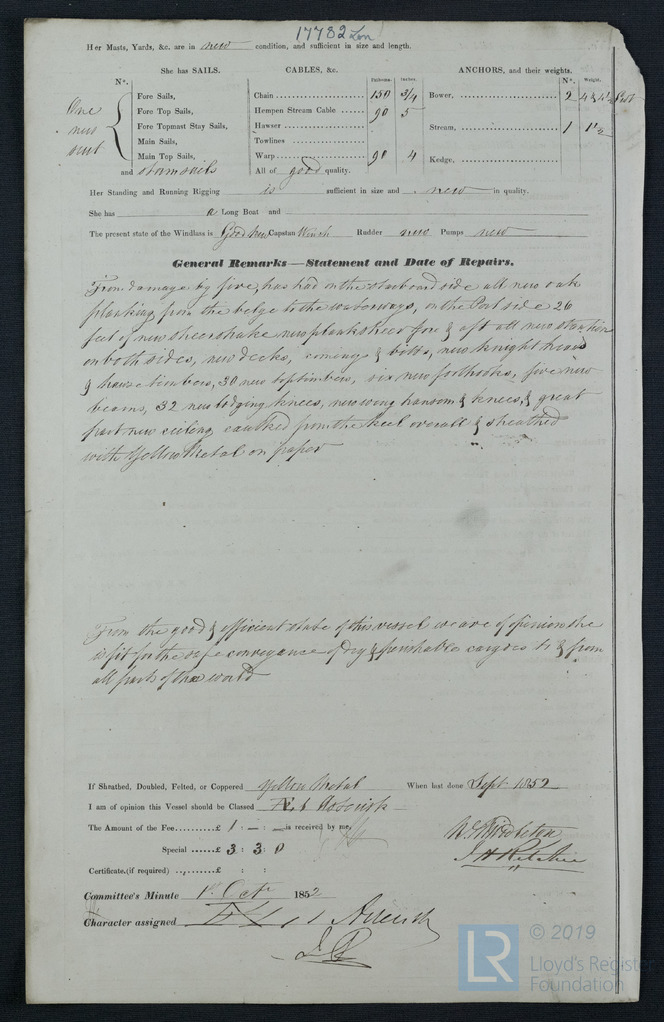 17782 Lon
Her Masts, Yards, &c. are in new condition, and sufficient in size and length.
She has SAILS.
CABLES, &c.
ANCHORS, and their weights.
Nº.
Fathoms.
Inches.
Nº.
Weight.
One
new
suit
Fore Sails,
Fore Top Sails,
Fore Topmast Stay Sails,
Main Sails,
Main Top Sails,
and
Chain 150 3/4
Hempen Stream Cable 90 5
Hawser
Towlines
Warp 90 4
All of good quality.
Bower, 2
Stream, 1
Kedge,
Her Standing and Running Rigging is sufficient in size and new in quality.
She has a Long Boat and
The present state of the Windlass is Good New Capstan Winch Rudder new Pumps new
General Remarks—Statement and Date of Repairs.
From damage by fire, has had on the starboard side all new oak
planking from the belge to the waterways, on the Port side 26
feet of new sheerstrake new planksheer fore & aft all new stantion
on both sides, new decks, comings & bitts, new knight heads
& hawse timbers, 30 new toptimbers, six new forthooks, five new
beams, 32 new lodging knees, new wing transom & knees, & great
part new cieling caulked from the keel overall & sheathed
with Yellow Metal on paper
From the good & efficient state of this vessel we are of opinion she
is fit for the safe conveyance of dry & perishable cargoes to & from
all parts of the world
If Sheathed, Doubled, Felted, or Coppered Yellow Metal When last done Sept 1852
I am of opinion this Vessel should be Classed Æ 1
The Amount of the Fee £ 1 : — : — is received by me,
Special £ 3 : 3 : 0
W. Middleton
J H Ritchie
Certificate (if required) £ : :
Committee's Minute 1st Octr 1852
Character assigned Æ 1
© 2019
LR
Lloyd's Register
Foundation